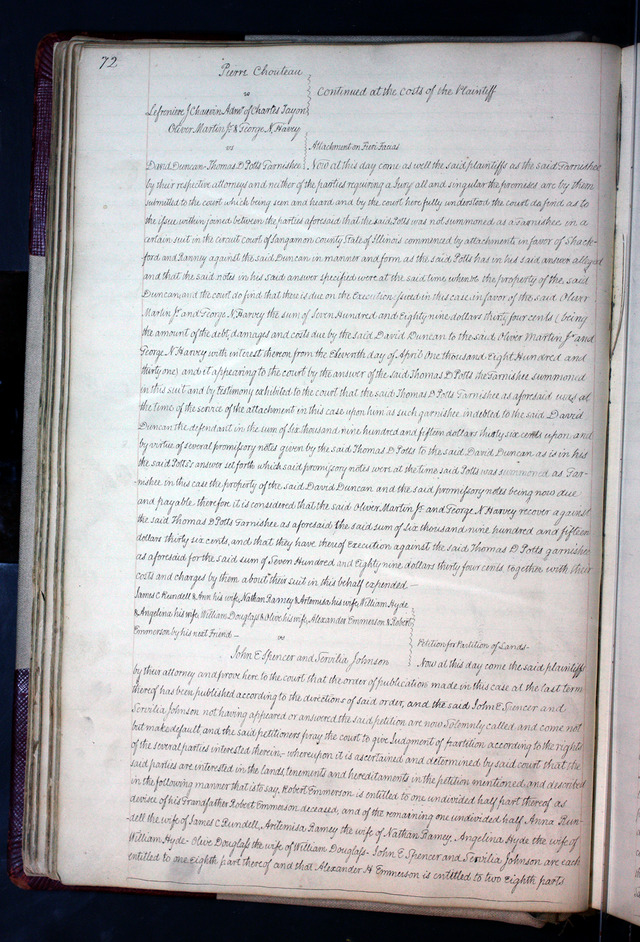 72
Pierre Chouteau
vs
Continued at the costs of the Plaintiff
Lefreniere J Chauvin Admr of Charles Tayon
Oliver Martin Jr & George N Harvey
vs
Attachment on Fieri Facias
David Duncan - Thomas D Potts Garnishee Now at this day come as well the said plaintiffs as the said Garnishee
by their respective attorneys and neither of the parties requiring a Jury all and singular the premises are by them
submitted to the court which being seen and heard and by the court here fully understood the court do find as to
the issue within joined between the parties aforesaid that the said Potts was not summoned as a Garnishee in a
certain suit in the circuit court of Sangamon county State of Illinois commenced by attachment in favor of Shack-
ford and Ranny against the said Duncan in manner and form as the said Potts has in his said answer alleged
and that the said notes in his said answer specified were at the said time, when &c the property of the said
Duncan, and the court do find that there is due on the Execution issued in this case in favor of the said Oliver
Martin Jr. and George N. Harvey the sum of Seven Hundred and Eighty nine dollars thirty four cents (being
the amount of the debt, damages and costs due by the said David Duncan to the said Oliver Martin Jr and
George N Harvey with interest thereon from the Eleventh day of April One thousand Eight Hundred and
thirty one) and it appearing to the court by the answer of the said Thomas D Potts the Garnishee summoned
in this suit and by testimony exhibited to the court that the said Thomas D Potts Garnishee as aforesaid was at
the time of the service of the attachment in this case upon him as such garnishee indebted to the said David
Duncan the defendant in the sum of six thousand nine hundred and fifteen dollars thirty six cents upon and
by virtue of several promissory notes given by the said Thomas D Potts to the said David Duncan as is in his
the said Potts's answer set forth which said promissory notes were at the time said Potts was summoned as Gar-
nishee in this case the property of the said David Duncan and the said promissory notes being now due
and payable therefor it is considered that the said Oliver Martin Jr and George N Harvey recover against
the said Thomas D Potts Garnishee as aforesaid the said sum of six thousand nine hundred and fifteen
dollars thirty six cents, and that they have thereof Execution against the said Thomas D Potts garnishee
as aforesaid for the said sum of Seven Hundred and Eighty nine dollars thirty four cents together with their
costs and charges by them about their suit in this behalf expended -
James C Rundell & Ann his wife, Nathan Ramey & Artemisa his wife William Hyde
& Angelina his wife William Douglass & Olive his wife, Alexander Emmerson & Robert
Emmerson by his next Friend -
vs
Petition for Partition of Lands -
John E Spencer and Servilia Johnson
Now at this day come the said plaintiffs
by their attorney and prove here to the court that the order of publication made in this case at the last term
thereof has been published according to the directions of said order, and the said John E Spencer and
Servilia Johnson not having appeared or answered the said petition are now Solemnly called and come not
but make default, and the said petitioners pray the court to give Judgment of partition according to the rights
of the several parties interested therein - whereupon it is ascertained and determined by said court that the
said parties are interested in the lands, tenements and hereditaments in the petition mentioned and described
in the following manner that is to say, Robert Emmerson is entitled to one undivided half part thereof as
devisee of his Grandfather Robert Emmerson deceased, and of the remaining one undivided half Anna Run-
dell the wife of James C Rundell, Artemisa Ramey the wife of Nathan Ramey, Angelina Hyde the wife of
William Hyde - Olive Douglass the wife of William Douglass - John E Spencer and Servilia Johnson are each
entitled to one Eighth part thereof and that Alexander H Emmerson is entitled to two Eighth parts